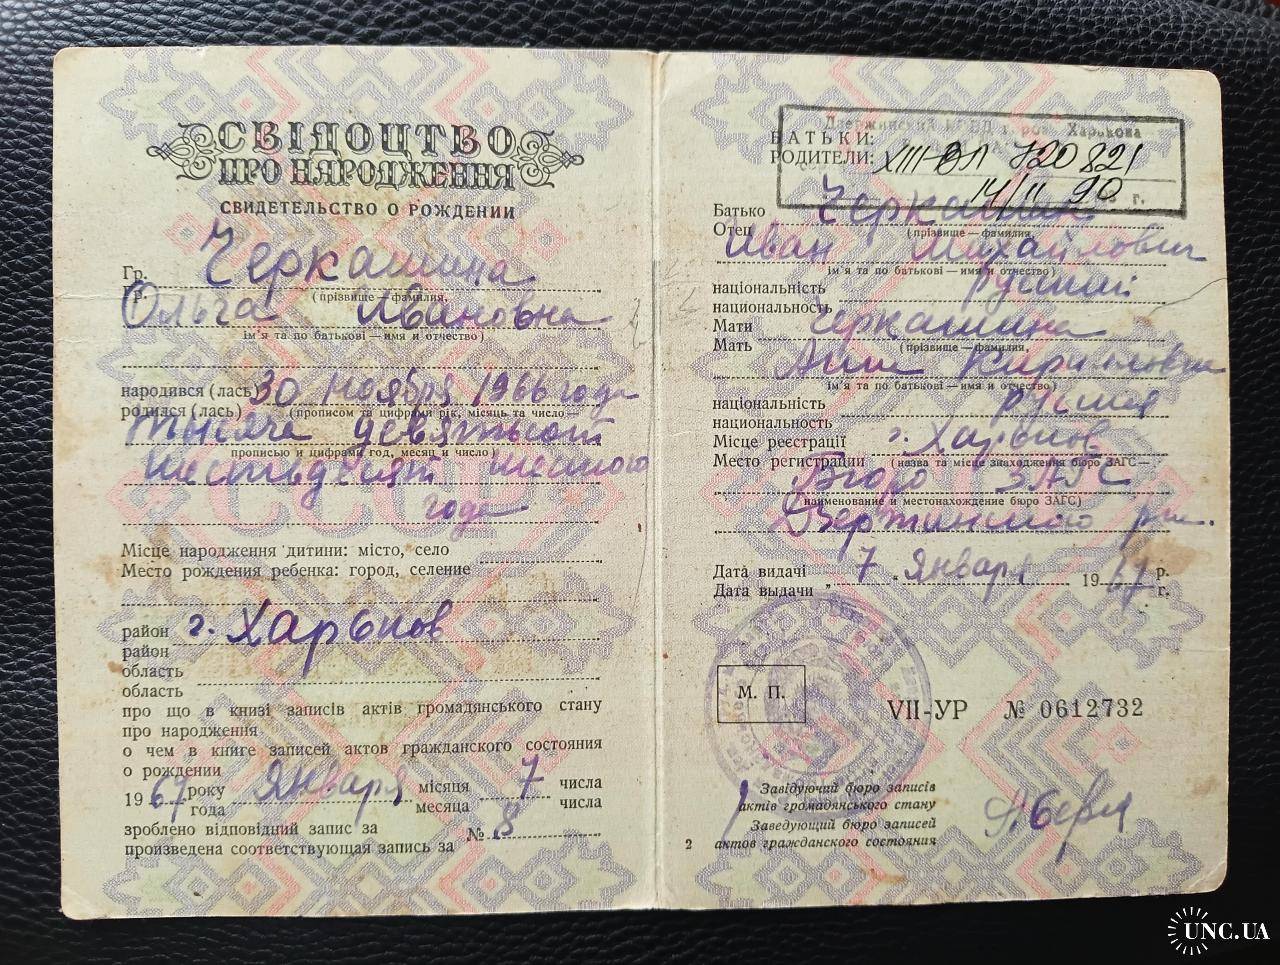 СВІДОЦТВО
ПРО НАРОДЖЕННЯ
СВИДЕТЕЛЬСТВО О РОЖДЕНИИ
Гр. Черкашина
Гр. (прізвище — фамилия,
Ольга Ивановна
ім'я та по батькові — имя и отчество)
народився (лась) 30 ноября 1966 года
родился (лась) (прописом та цифрами рік, місяць та число —
тысяча девятьсот
прописью и цифрами год, месяц и число)
шестьдесят шестого
года
СССР
Місце народження дитини: місто, село
Место рождения ребенка: город, селение
район г. Харьков
район
область
область
про що в книзі записів актів громадянського стану
про народження
о чем в книге записей актов гражданского состояния
о рождении
1967 року Января місяця 7 числа
года месяца числа
зроблено відповідний запис за № 8
произведена соответствующая запись за
Дзержинский гор. Харькова
БАТЬКИ:
РОДИТЕЛИ: XIII-ВЛ 720821
14/II 90 г.
Батько Черкашин
Отец (прізвище — фамилия,
Иван Михайлович
ім'я та по батькові — имя и отчество)
національність русский
национальность
Мати Черкашина
Мать (прізвище — фамилия,
Анна Кирилловна
ім'я та по батькові — имя и отчество)
національність русская
национальность
Місце реєстрації г. Харьков
Место регистрации (назва та місце знаходження бюро ЗАГС —
Бюро ЗАГС
наименование и местонахождение бюро ЗАГС)
Дзержинского р-на.
Дата видачі „ 7 " Января 1967 р.
Дата выдачи г.
М. П.
VII-УР № 0612732
Завідуючий бюро записів
актів громадянського стану
Заведующий бюро записей
2 актов гражданского состояния
UNC.UA